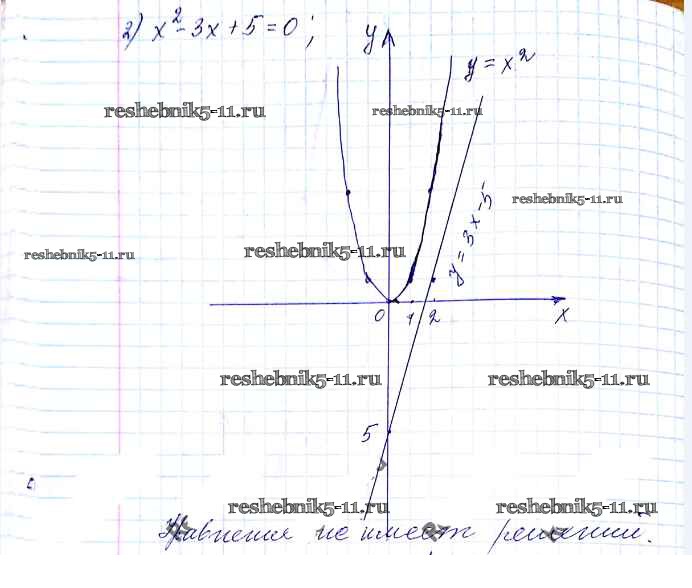 2) x² - 3x + 5 = 0;
y
y = x²
reshebnik5-11.ru
reshebnik5-11.ru
reshebnik5-11.ru
y = 3x - 5
reshebnik5-11.ru
reshebnik5-11.ru
0 1 2 x
reshebnik5-11.ru
reshebnik5-11.ru
5
reshebnik5-11.ru
reshebnik5-11.ru
Уравнения не имеет решений.